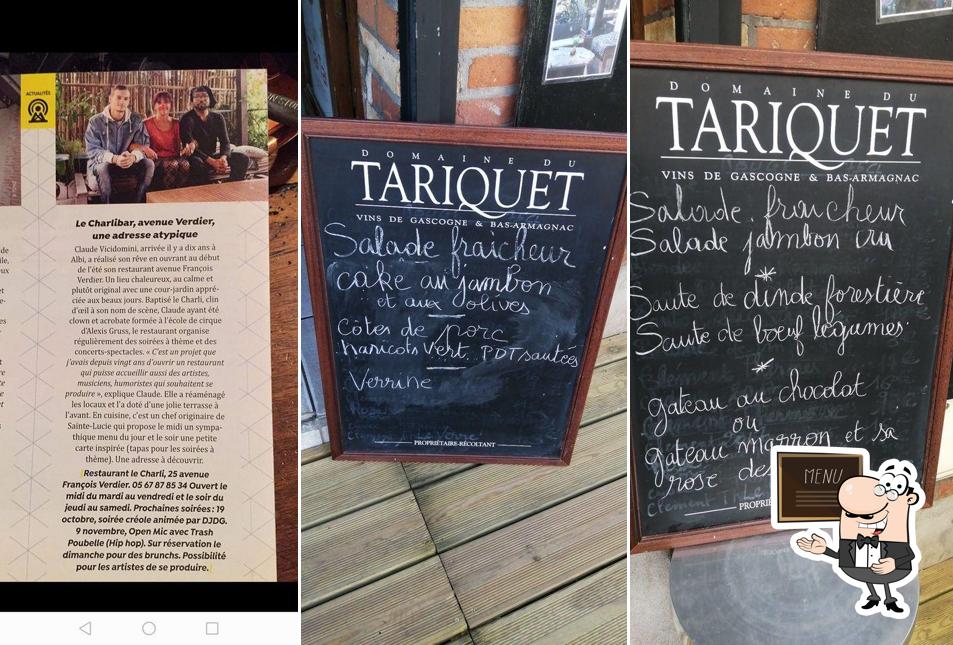 ACTUALITÉS
Le Charlibar, avenue Verdier,
une adresse atypique
Claude Vicidomini, arrivée il y a dix ans à
Albi, a réalisé son rêve en ouvrant au début
de l'été son restaurant avenue François
Verdier. Un lieu chaleureux, au calme et
plutôt original avec une cour-jardin appré-
ciée aux beaux jours. Baptisé le Charli, clin
d'œil à son nom de scène, Claude ayant été
clown et acrobate formée à l'école de cirque
d'Alexis Gruss, le restaurant organise
régulièrement des soirées à thème et des
concerts-spectacles. « C'est un projet que
j'avais depuis vingt ans d'ouvrir un restaurant
qui puisse accueillir aussi des artistes,
musiciens, humoristes qui souhaitent se
produire », explique Claude. Elle a réaménagé
les locaux et l'a doté d'une jolie terrasse à
l'avant. En cuisine, c'est un chef originaire de
Sainte-Lucie qui propose le midi un sympa-
thique menu du jour et le soir une petite
carte inspirée (tapas pour les soirées à
thème). Une adresse à découvrir.
Restaurant le Charli, 25 avenue
François Verdier. 05 67 87 85 34 Ouvert le
midi du mardi au vendredi et le soir du
jeudi au samedi. Prochaines soirées : 19
octobre, soirée créole animée par DJDG.
9 novembre, Open Mic avec Trash
Poubelle (Hip hop). Sur réservation le
dimanche pour des brunchs. Possibilité
pour les artistes de se produire.
DOMAINE DU
TARIQUET
VINS DE GASCOGNE & BAS-ARMAGNAC
Salade fraicheur
cake au jambon
et aux olives
Côtes de porc
haricots vert. PDT sautées
Verrine
PROPRIÉTAIRE-RÉCOLTANT
DOMAINE DU
TARIQUET
VINS DE GASCOGNE & BAS-ARMAGNAC
Salade fraicheur
Salade jambon cru
Saute de dinde forestière
Saute de bœuf légumes
gateau au chocolat
ou
gateau marron et sa
rose des
MENU